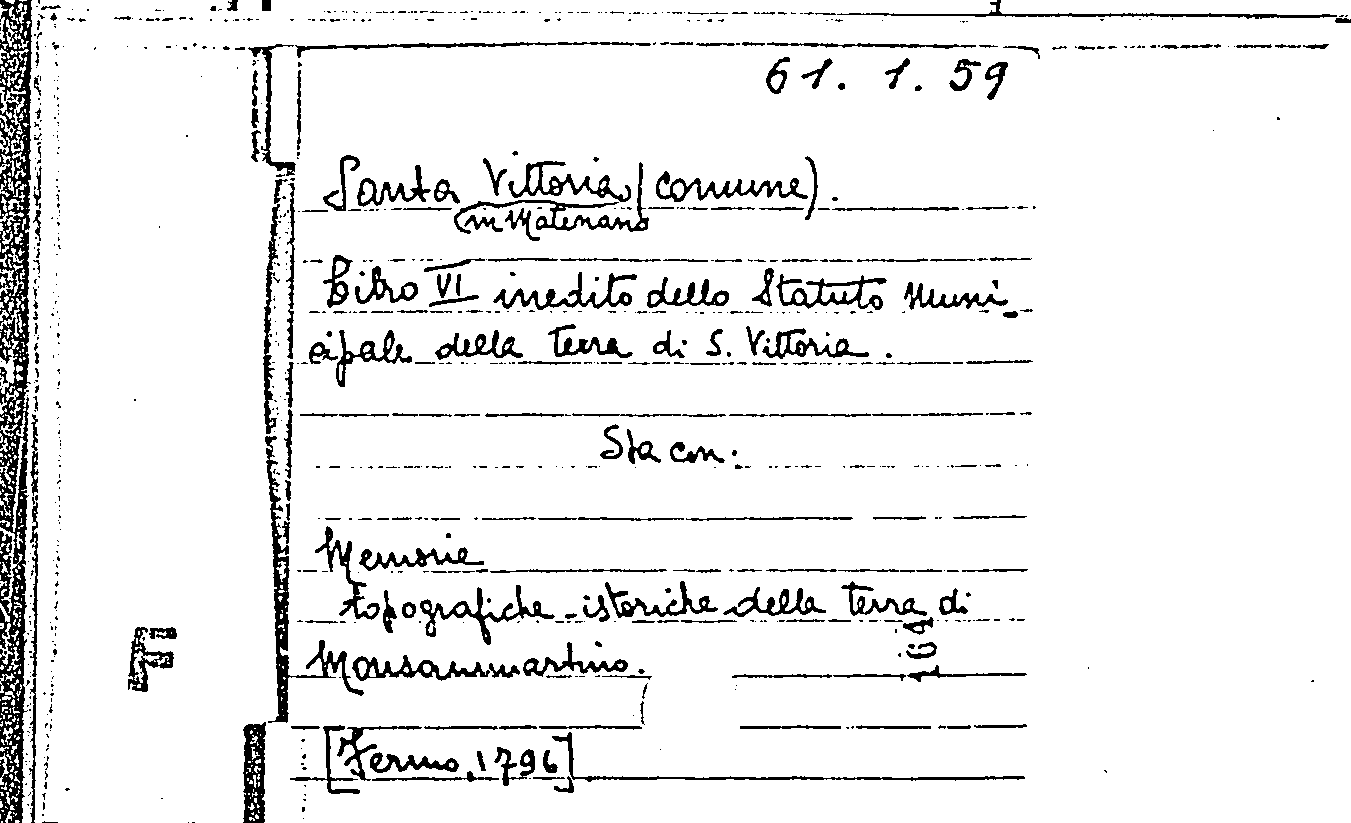 61. 1. 59
Santa Vittoria (comune).
(in Matenano
Libro VI inedito dello Statuto Muni-
cipale della terra di S. Vittoria.
Sta con.
Memorie
topografiche-istoriche della terra di
Monsammartino.
164
F
[Fermo, 1796]